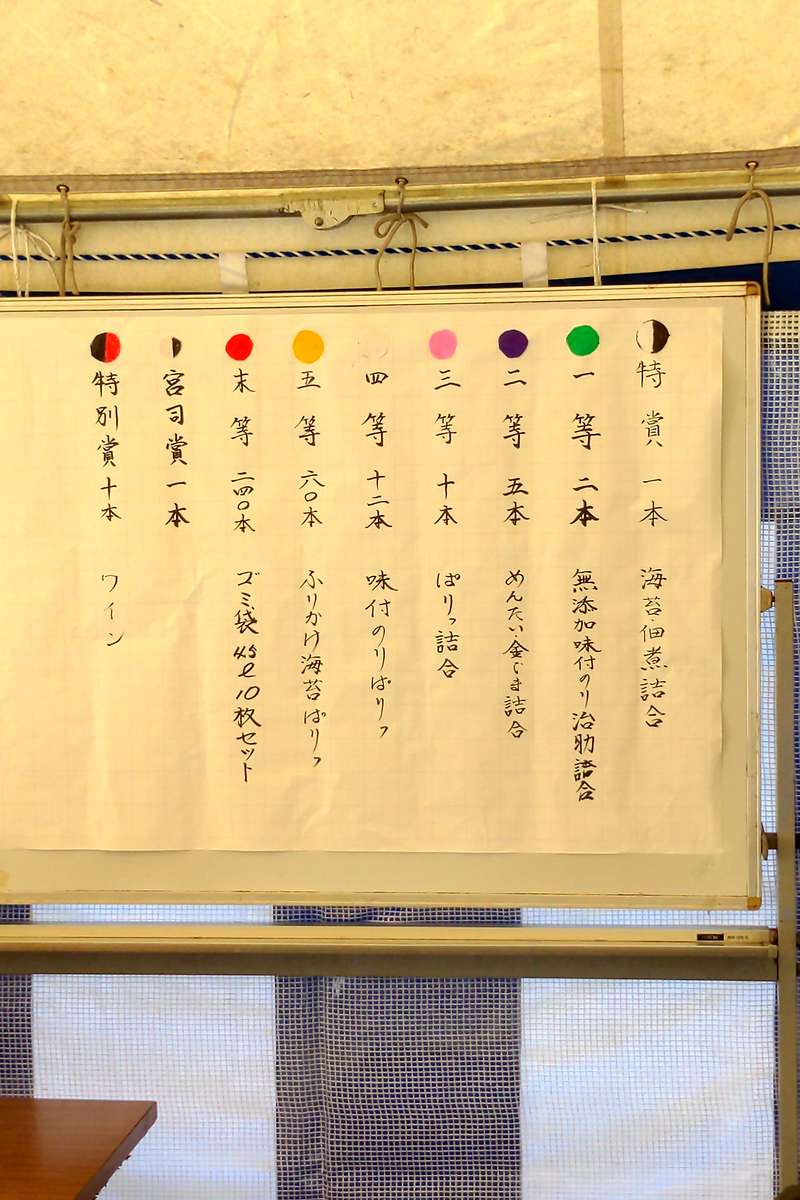 特賞 一本 海苔佃煮詰合
一等 二本 無添加味付のり治助詰合
二等 五本 めんたい金ごま詰合
三等 十本 ぱりっ詰合
四等 十二本 味付のりぱりっ
五等 六〇本 ふりかけ海苔ぱりっ
末等 二四〇本 ゴミ袋45ℓ10枚セット
宮司賞 一本
特別賞 十本 ワイン